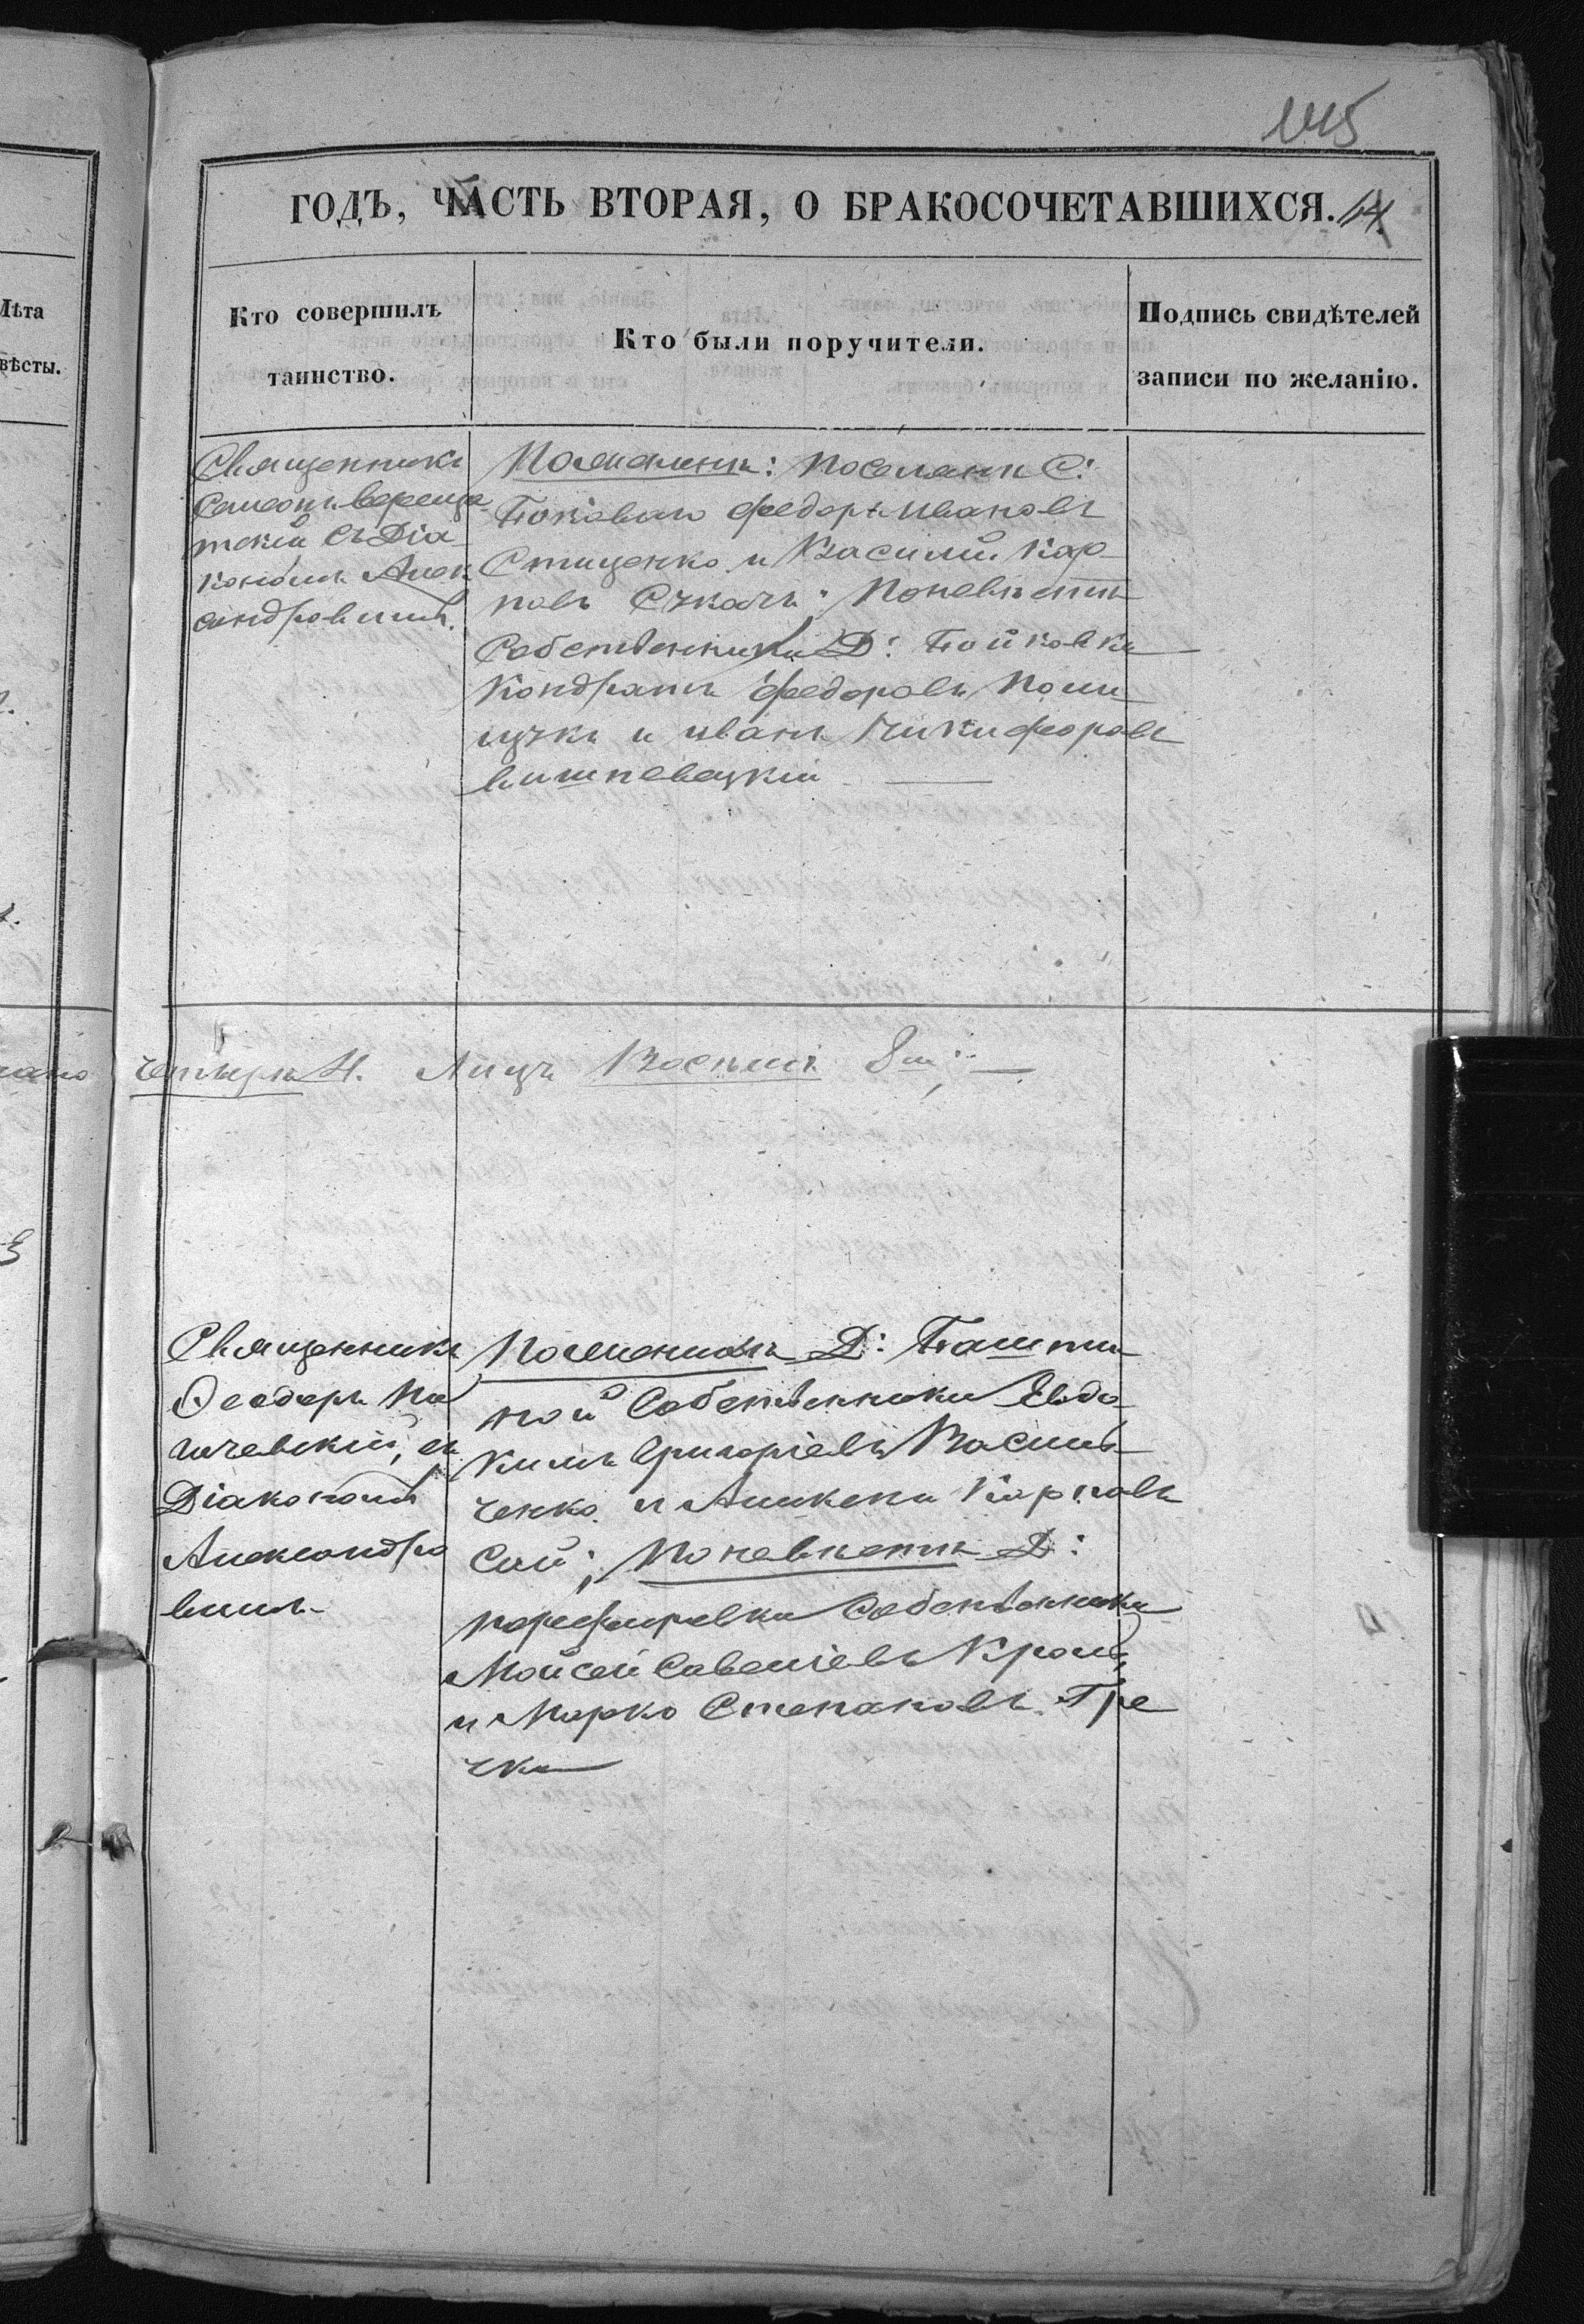 145
ГОДЪ, ЧАСТЬ ВТОРАЯ, О БРАКОСОЧЕТАВШИХСЯ. 14.
Лѣта
вѣсты.
Кто совершилъ
таинство.
Кто были поручители.
Подпись свидѣтелей
записи по желанію.
Священникъ
Симеонъ Вереща
тскій съ Діа
кономъ Алек
сандровимъ.
По женихѣ: поселяни С:
Федоръ Ивановъ
Стиценко и Василій Кар
повъ Сукачъ; По невѣстѣ
Собственники Д: Бойковки
Кондратъ Федоровъ
и Иванъ Никифоровъ
Вишневецкій
четыри 4. Лицъ Восьмъ 8м;
Священникъ
Ѳеодоръ Па
шчевскій, съ
Діакономъ
Александро
вимъ
По женихѣ Д: Башти
ной Собственники Евдо
кимъ Григоріевъ Василь
ченко и Карповъ
Сай; По невѣстѣ Д:
порфировки Собственники
Мойсей Савеліевъ Кроль,
и Марко Степановъ Гре
чка